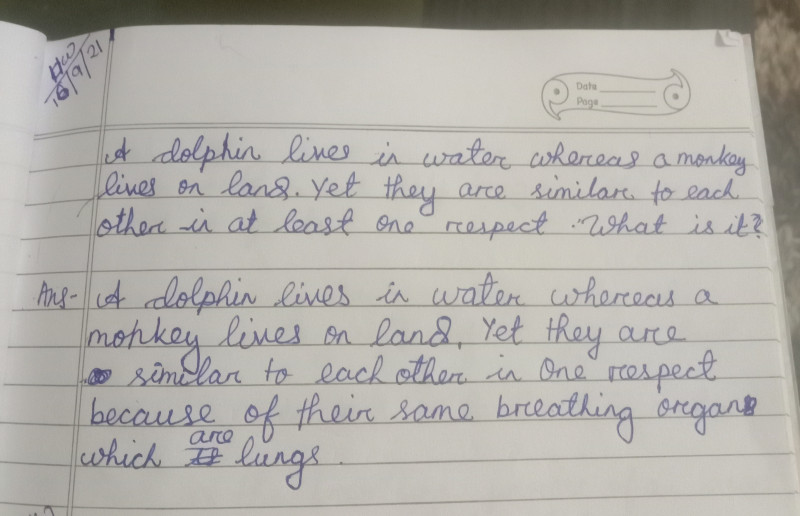 HW
16/9/21
Date
Page
A dolphin lives in water whereas a monkey
lives on land. Yet they are similar to each
other in at least one respect. What is it?
Ans- A dolphin lives in water whereas a
monkey lives on land. Yet they are
similar to each other in One respect
because of their same breathing organs
which are lungs.